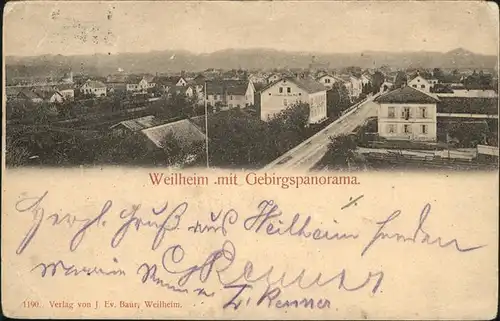 Weilheim mit Gebirgspanorama.
Herzl. Gruß aus Weilheim senden
Renner
Z. Renner
1190. Verlag von J. Ev. Baur, Weilheim.